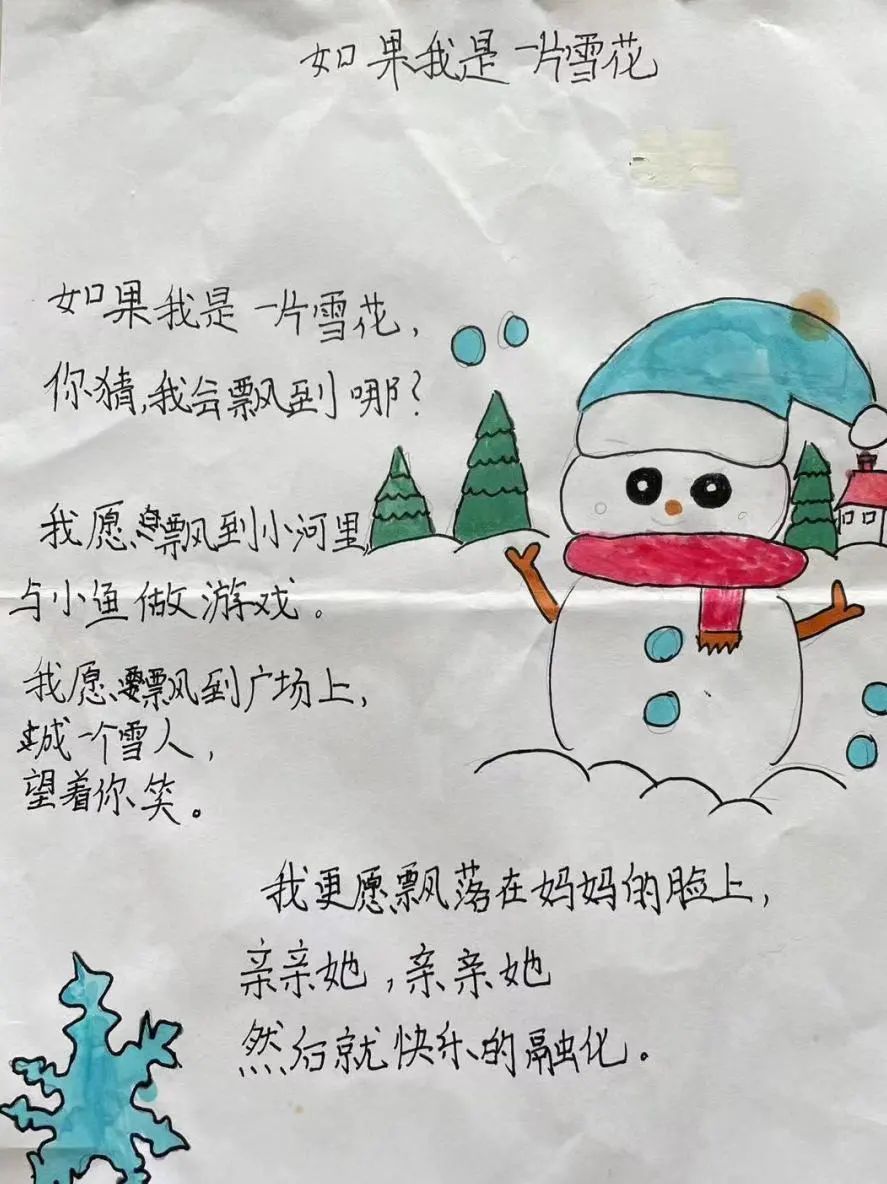 如果我是一片雪花
如果我是一片雪花，
你猜，我会飘到哪？
我愿飘到小河里
与小鱼做游戏。
我愿飘到广场上，
城一个雪人，
望着你笑。
我更愿飘落在妈妈的脸上，
亲亲她，亲亲她
然后就快乐的融化。